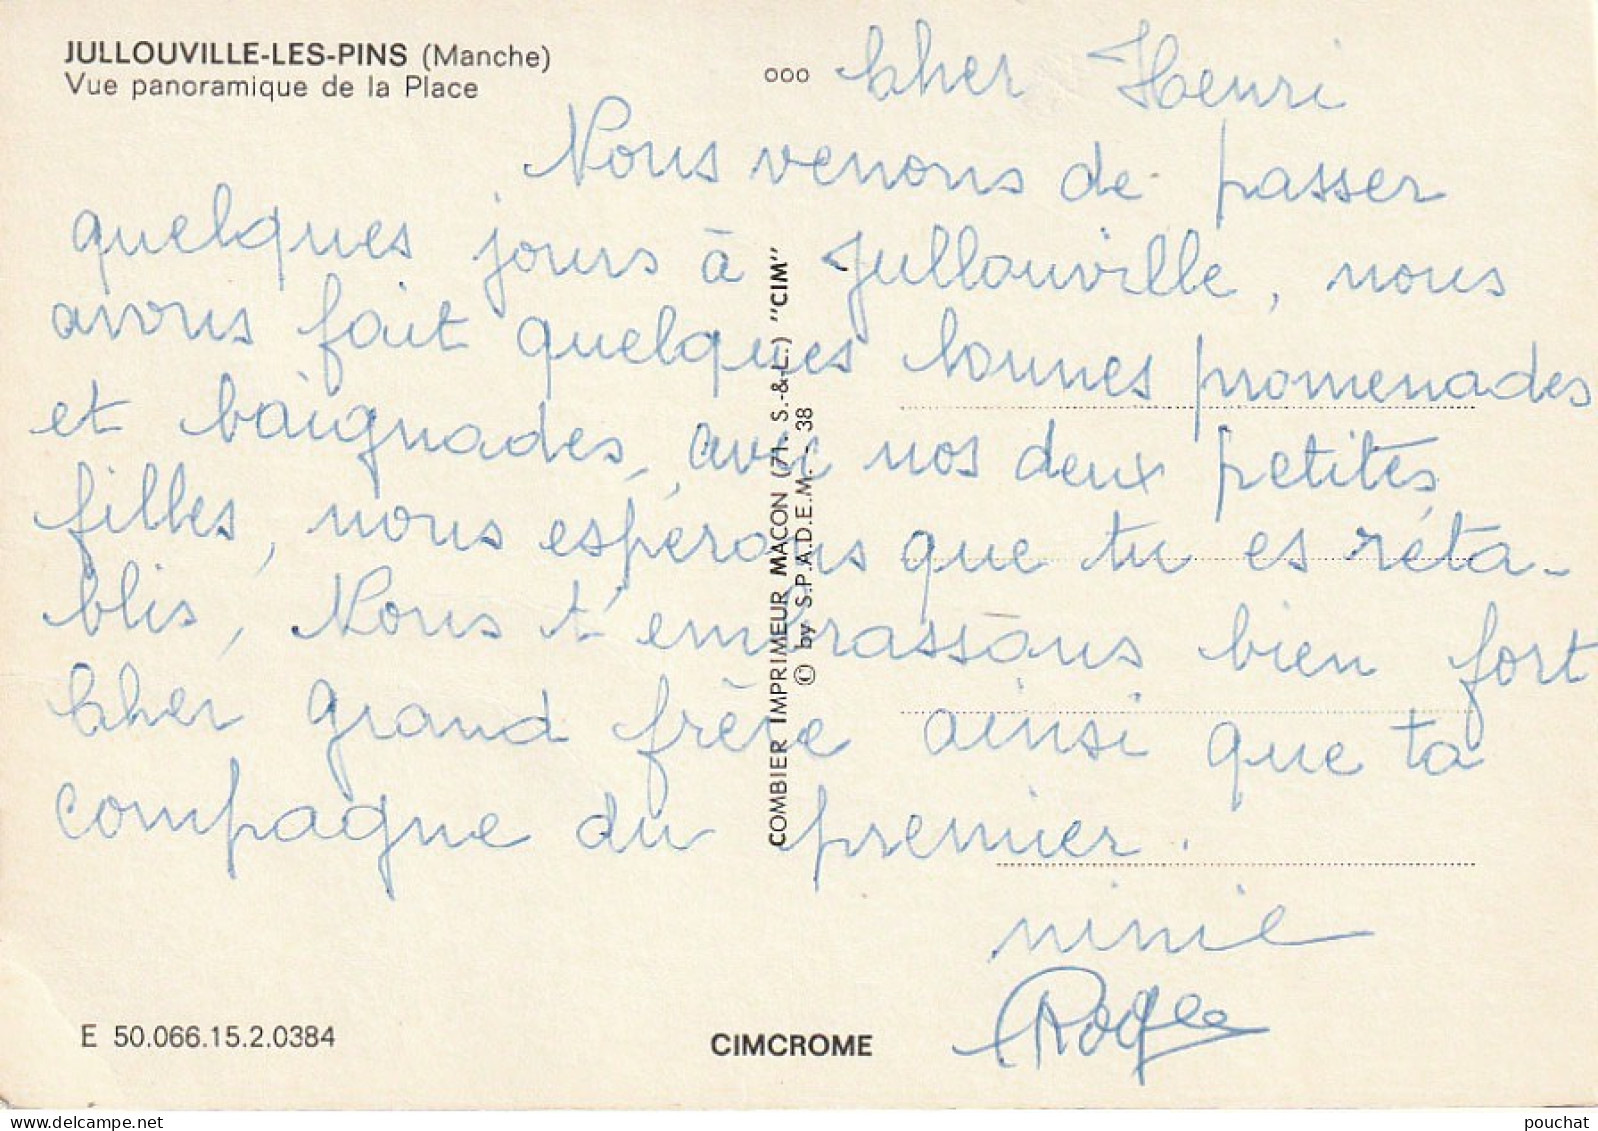 JULLOUVILLE-LES-PINS (Manche)
Vue panoramique de la Place
ooo
Cher Henri
Nous venons de passer
quelques jours à Jullouville, nous
avons fait quelques bonnes promenades
et baignades, avec nos deux petites
filles, nous espérons que tu es réta-
blis, Nous t'embrassons bien fort
Cher grand frère ainsi que ta
compagne du premier.
ninie
Roger
COMBIER IMPRIMEUR MACON (71. S.-&-L.) "CIM"
© by S.P.A.D.E.M. - 38
E 50.066.15.2.0384
CIMCROME
pouchat